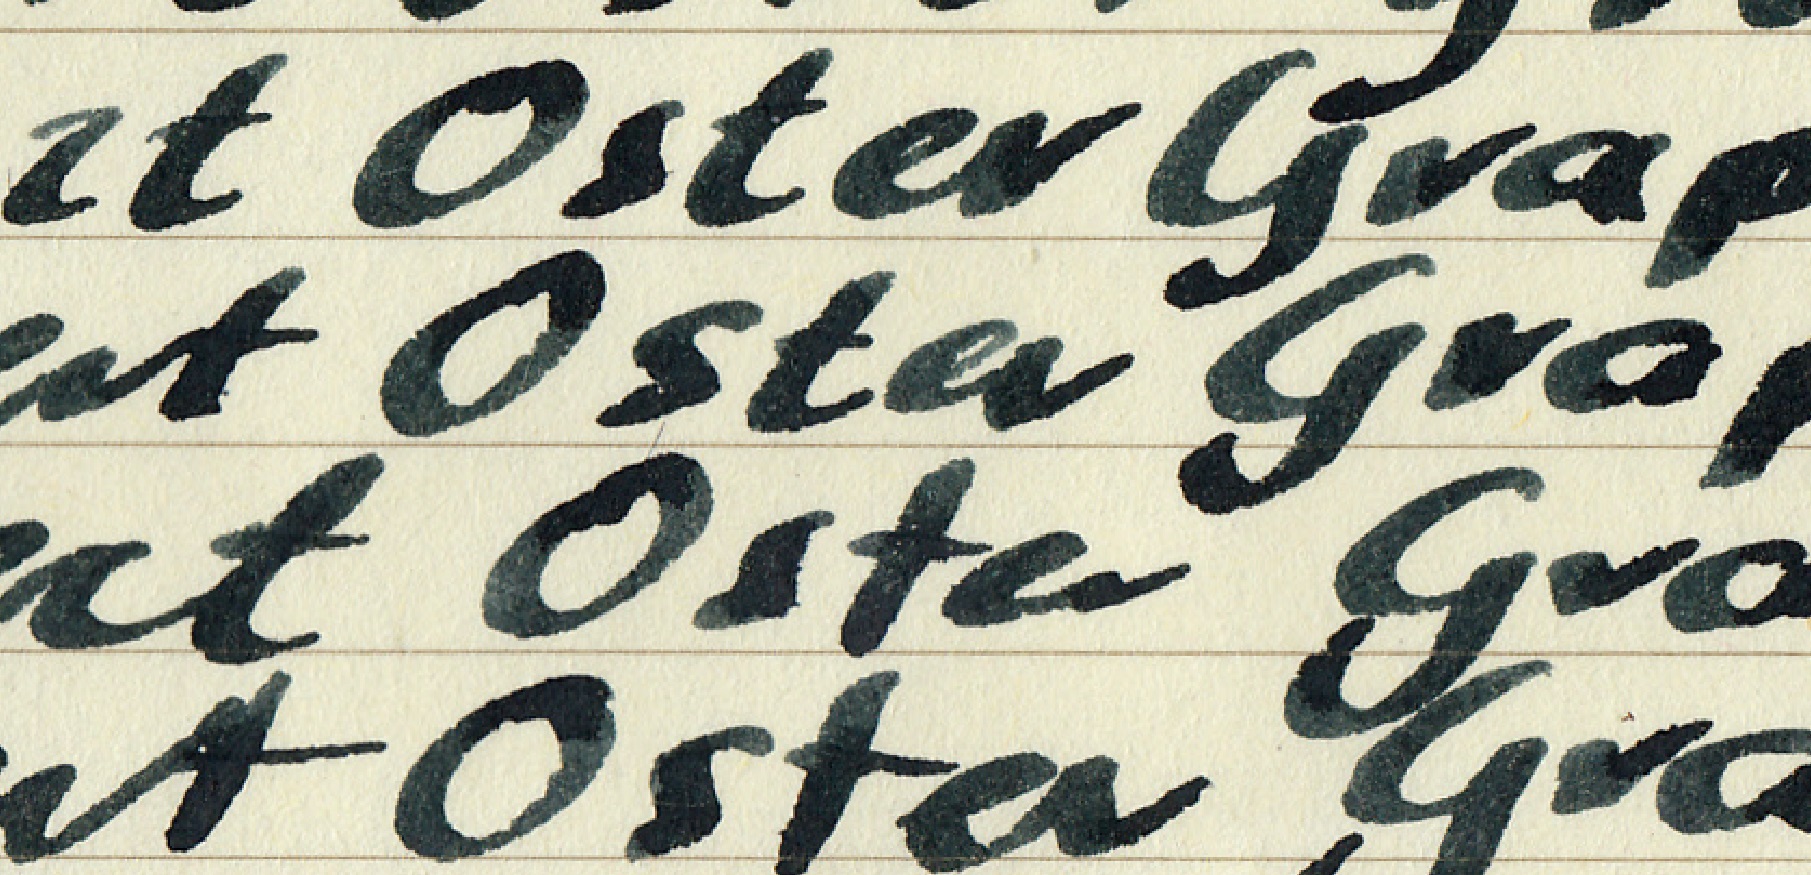 t Oster Grap
t Oster Grap
t Oster Gra
t Oster Gra